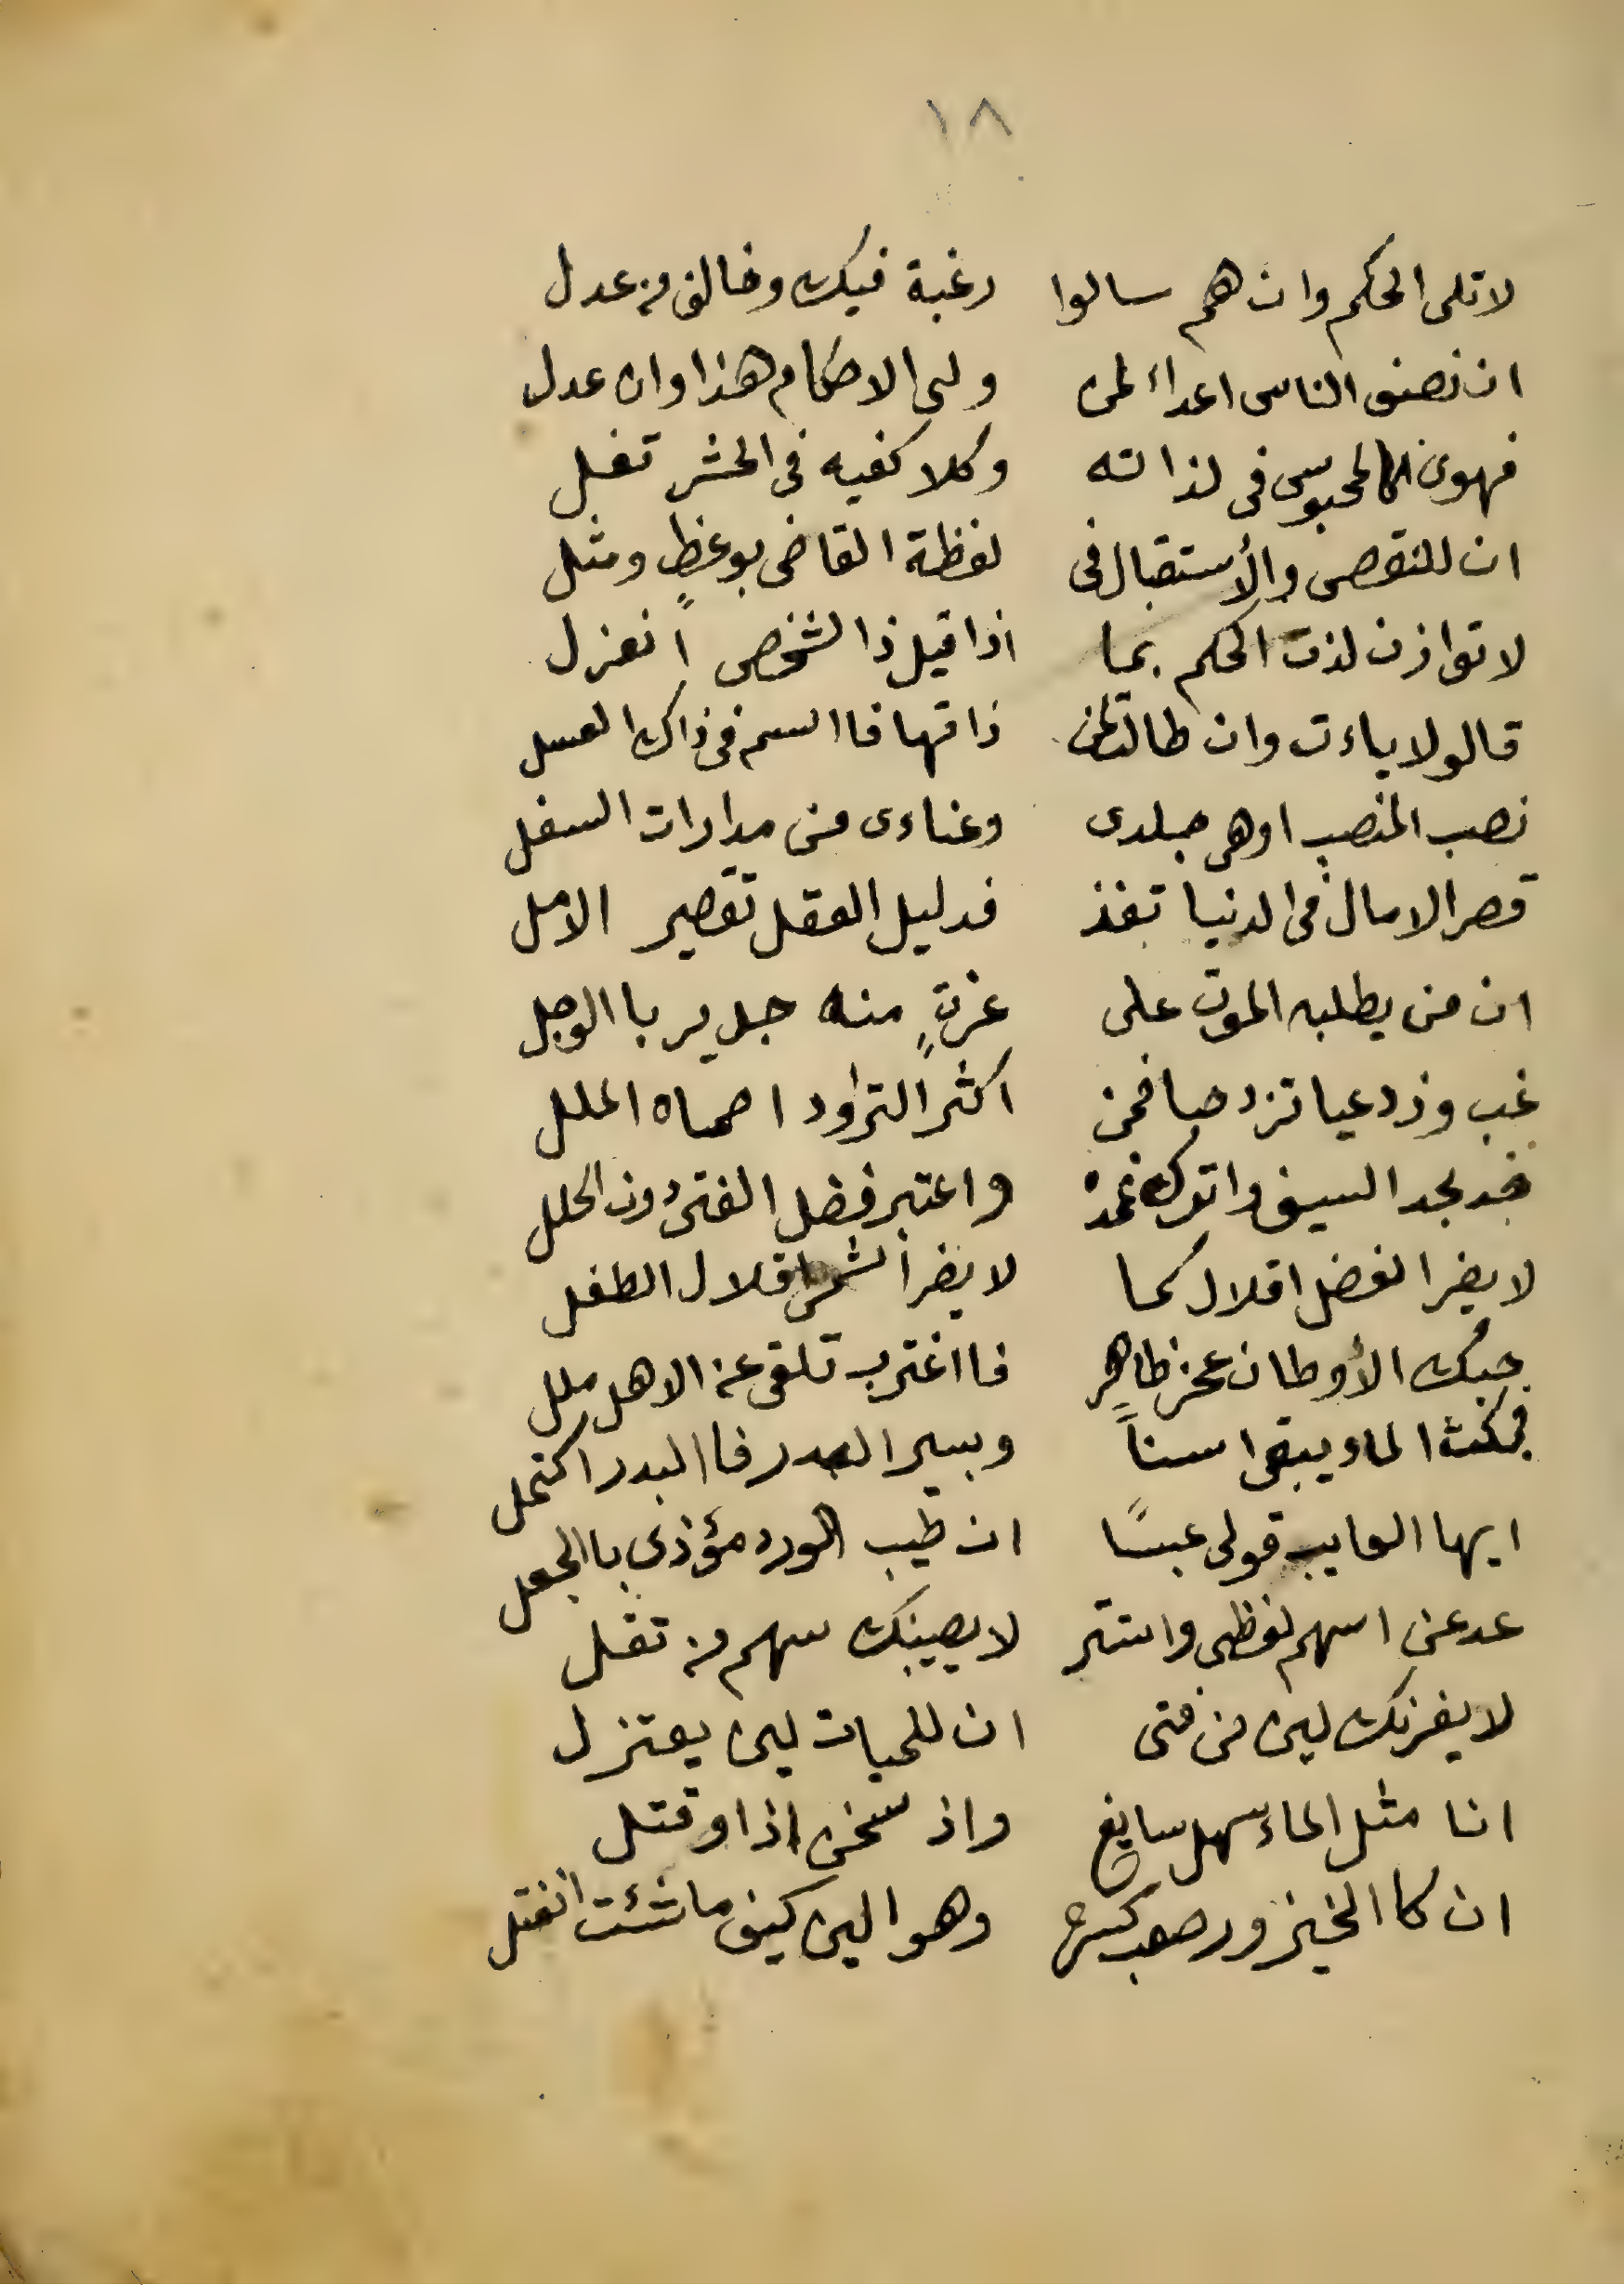 ١٨
لا تلى الحكم وان هم سالوا رغبة فيك وخالف من عدل
ان نصف الناس اعداء لمن ولى الاحكام هذا وان عدل
فهون كالمحبوس فى لذاته وكلا كفيه فى الحشر تغل
ان للنقص والأستقبال فى لفظة القاضى بوعظٍ ومثل
لا توازن لذت الحكم بما اذا قيل ذا الشخص أنعزل
قالولاياءت وان طالتلمن ذاقها فا السم فى ذاك العسل
نصب المنصب اوهى جلدى وعناءى من مدارات السفل
قصر الامال فى الدنيا تفذ فدليل العقل تقصير الامل
ان من يطلبه الموت على غرتٍ منه جدير با الوجل
غب وزد عبا تزد حبا فمن اكثر التراود احماه الملل
خد بحد السيف واترك غمده واعتبر فضل الفتى دون الحلل
لا يضر الفضل اقلال كما لا يضر الشمس اقلال الطفل
حبك الأوطان عجز ظاهر فا اغترب تلقى عن الاهل ملل
فمكث الماء يبقى اسناً وبسير البدر فا البدر اكتمل
ايها العايب قولى عبسًا ان طيب الورد مؤذى با الجعل
عد عن اسهم لفظى واستتر لا يصيبنك سهم من تقل
لا يغرنك لين من فتى ان للحيات لين يعتزل
انا مثل الماء سهل سايغ واذ سخن اذا وقتل
ان كا الخيزور صعب كسره وهو الين كيف ما شئت انفتل